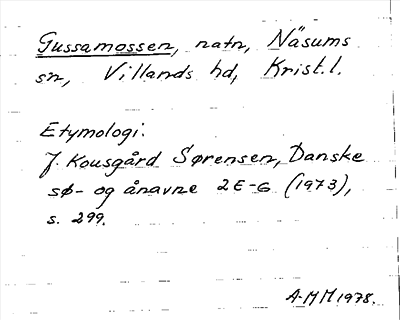 Gussamossen, natn, Näsums
sn, Villands hd, Krist.l.
Etymologi:
J. Kousgård Sørensen, Danske
sø- og ånavne 2 E-G (1973),
s. 299.
A-MM 1978.